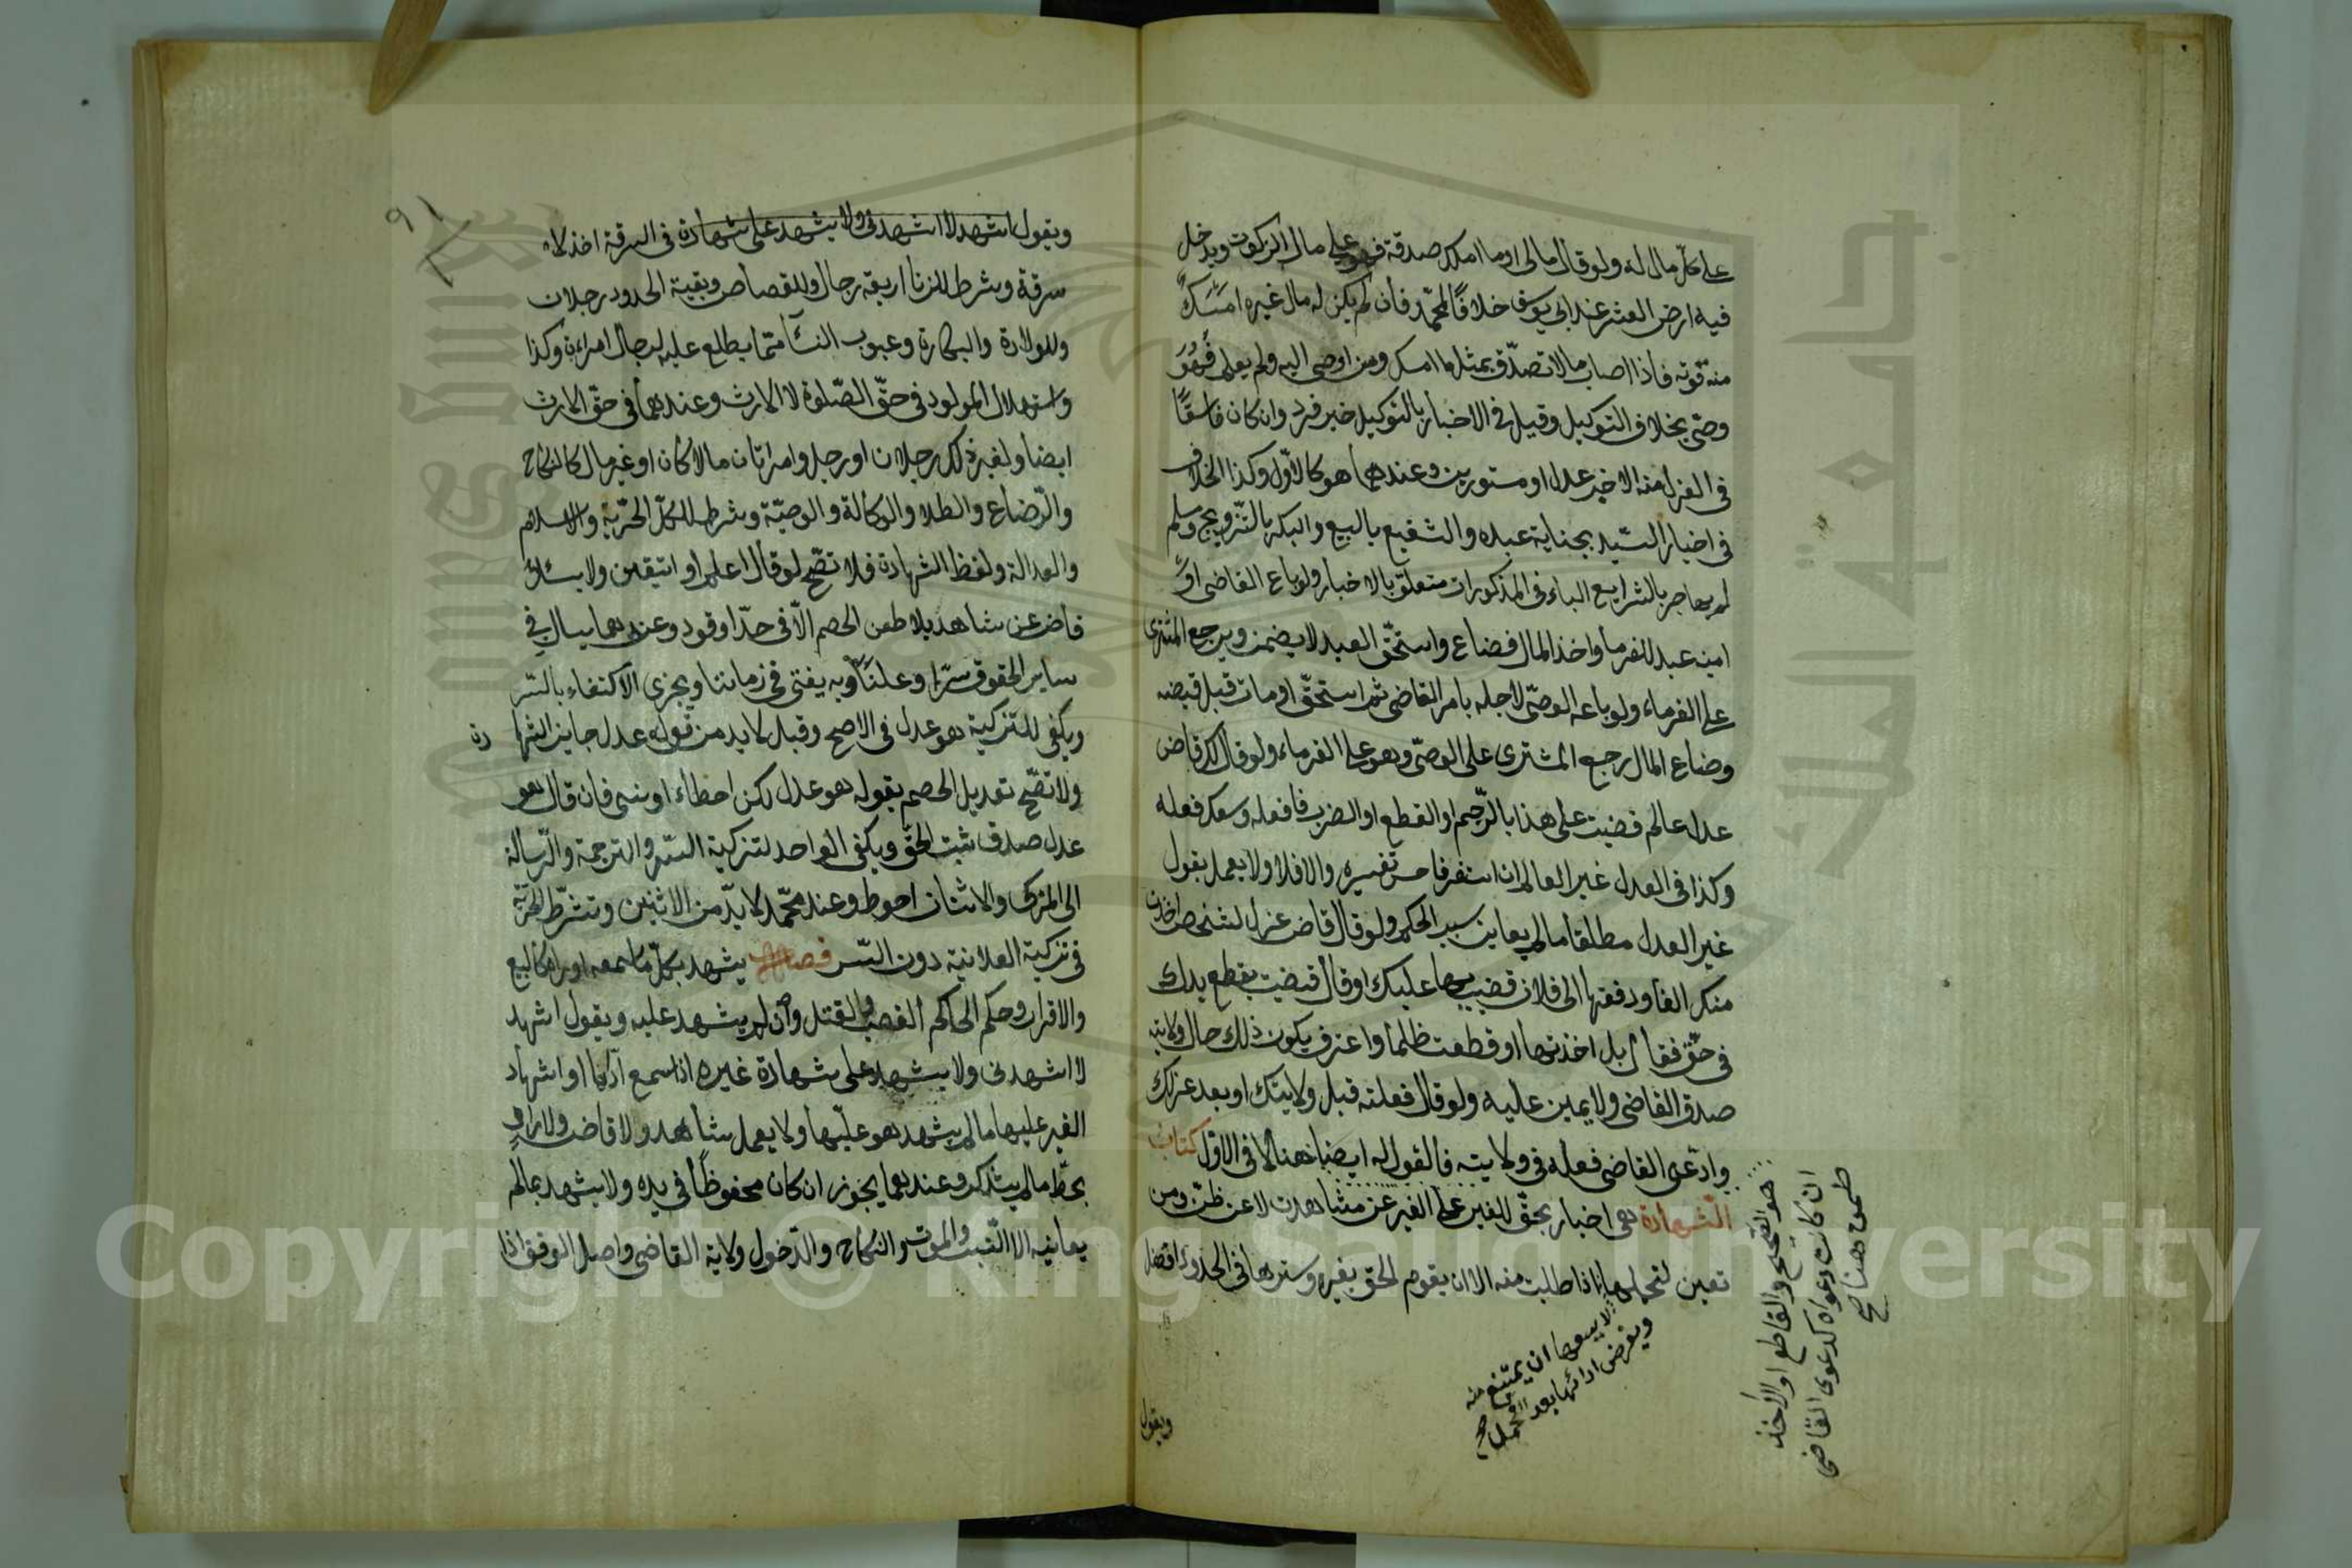 على كل مال له ولو قال مالى او ما املك صدقة فهو على مال الزكوة ويدخل
فيه ارض العشر عند ابى يوسف خلافًا لمحمّد فأن لم يكن له مال غيره امسك
منه قوته فاذا اصاب مالا تصدّق بمثل ما امسك ومن اوصى اليه ولم يعلم فهو
وصّى بخلاف التوكيل وقيل فى الاخبار بالتوكيل خبر فرد وان كان فاسقًا
فى العزل منه الا خبر عدل او مستورين وعندهما هو كالاوّل وكذا الخلاف
فى اخبار السّيد بجناية عبده والشفيع بالبيع والبكر بالتّزويج ومسلم
لم يهاجر بالشرايع الباء فى المذكورات متعلق بالاخبار ولو باع القاضى او
امينه عبد للغرماء واخذ المال فضاع واستحّق العبد لا يضمن ويرجع المشترى
على الغرماء ولو باعه الوصّى لاجله بامر القاضى ثم استحقّ او مات قبل قبضه
وضاع المال رجع المشترى على الوصّى وهو على الغرماء ولو قال لك قاض
عدل عالم قضيت على هذا بالرّجم او القطع او الضرب فافعله وسعك فعله
وكذا فى العدل غير العالم ان استفسر فاحسن تفسيره والا فلا ولا يعمل بقول
غير العدل مطلقا ما لم يعاين سبب الحكم ولو قال قاض عزل لشخص اخذت
منك الفا ودفعتها الى فلان قضيت بها عليك او قال قضيت بقطع يدك
فى حقّ فقال بل اخذتها او قطعت ظلما واعترف بكون ذلك حال ولايته
صدق القاضى ولا يمين عليه ولو قال فعلته قبل ولايتك او بعد عزلك
وادّعى القاضى فعله فى ولايته فالقول له ايضا هنا لا فى الاوّل كتاب
الشهادة هى اخبار بحقّ للغير على الغير عن مشاهدت لا عن ظنّ ومن
تعين لتحملها اذا طلبت منه الا ان يقوم الحق بغيره وسترها فى الحدود افضل
لا يسعها ان يمتنع منه
ويفرض ادائها بعد التحمل صح
هو الصّحيح والقاطع او الاخذ
ان كانت دعواه كدعوى القاضى
ضمن هنا صح
ويقول
٩١
ويقول اشهد لا اشهدنى ولا يشهد على شهادة فى السرقة اخذ لا
سرقة وشرط للزنا اربعة رجال وللقصاص وبقية الحدود رجلان
وللولادة والبكارة وعيوب النسآ ممّا يطلع عليه الرجال امراءة وكذا
واستهلال المولود فى حقّ الصّلوة لا الارث وعندهما فى حقّ الارث
ايضا ولغير ذلك رجلان او رجل وامراتان مالا كان او غير مال كالنكاح
والرّضاع والطلاق والوكالة والوصيّة وشرط للكلّ الحرّية والاسلام
والعدالة ولفظ الشهادة فلا تصّح لو قال اعلم او اتيقن ولا يسئل
قاض عن شاهد بلا طعن الخصم الاّ فى حدّ او قود وعندهما يسال فى
ساير الحقوق سرّا وعلنًا وبه يفتى فى زماننا ويجزى الاكتفاء بالسّر
ويكفى للتزكية هو عدل فى الاصح وقيل لا بد من قوله عدل جايز الشها دة
ولا تصّح تعديل الخصم بقوله هو عدل لكن اخطاء او نسى فان قال هو
عدل صدق ثبت الحقّ ويكفى الواحد لتزكية السّر والترجمة والرّسالة
الى المزكى والاثنان احوط وعند محمّد لا بدّ من الاثنين وتشرّط الحرّية
فى تزكية العلانية دون السّر فصل يشهد بكلّ ما سمعه او راه كالبيع
والاقرار وحكم الحاكم الغصب والقتل وان لم يشهد عليه ويقول اشهد
لا اشهدنى ولا يشهد على شهادة غيره اذا سمع ادآها او اشهاد
الغير عليها ما لم يشهد هو عليّها ولا يعمل شاهد ولا قاض ولا راو
بخطّ ما لم يتذكر وعندهما يجوز ان كان محفوظًا فى يده ولا يشهد بما لم
يعاينه الا النّسب والموت والنكاح والدّخول ولاية القاضى واصل الوقف اذا
Copyright © King Saud University